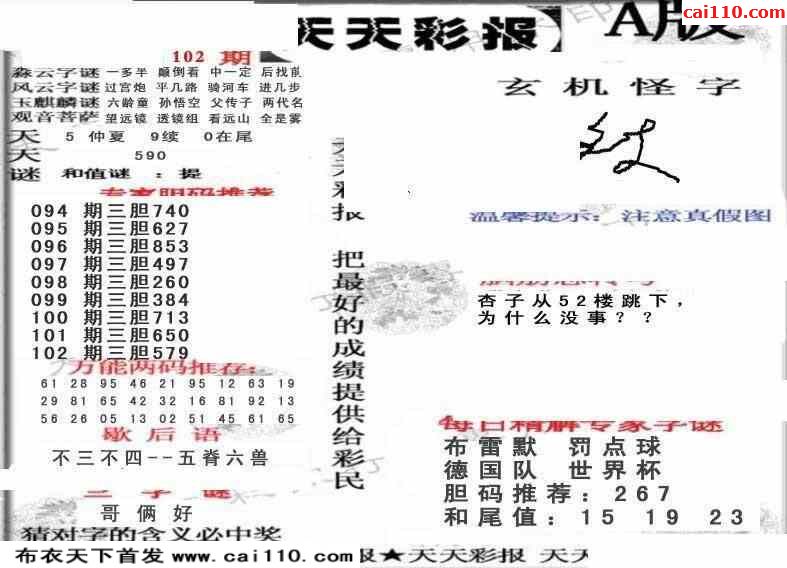 cai110.com
天天彩报】 A版
102 期
森云字谜 一多半 颠倒看 中一定 后找前
风云字谜 过宫炮 平几路 骑河车 进几步
玉麒麟谜 六龄童 孙悟空 父传子 两代名
观音菩萨 望远镜 透镜组 看远山 全是雾
天 5 仲夏 9续 0在尾
天 590
谜 和值谜 : 提
专家胆码推荐
094 期三胆740
095 期三胆627
096 期三胆853
097 期三胆497
098 期三胆260
099 期三胆384
100 期三胆713
101 期三胆650
102 期三胆579
万能两码推荐:
61 28 95 46 21 95 12 63 19
29 81 65 42 32 16 81 92 13
56 26 05 13 02 51 45 61 65
歇后语
不三不四--五脊六兽
三字谜
哥俩好
猜对字的含义必中奖
天天彩报 把最好的成绩提供给彩民
玄机怪字
温馨提示: 注意真假图
脑筋急转弯
杏子从52楼跳下,
为什么没事??
每日精解专家字谜
布雷默 罚点球
德国队 世界杯
胆码推荐: 267
和尾值: 15 19 23
布衣天下首发 www.cai110.com 报★天天彩报 天天